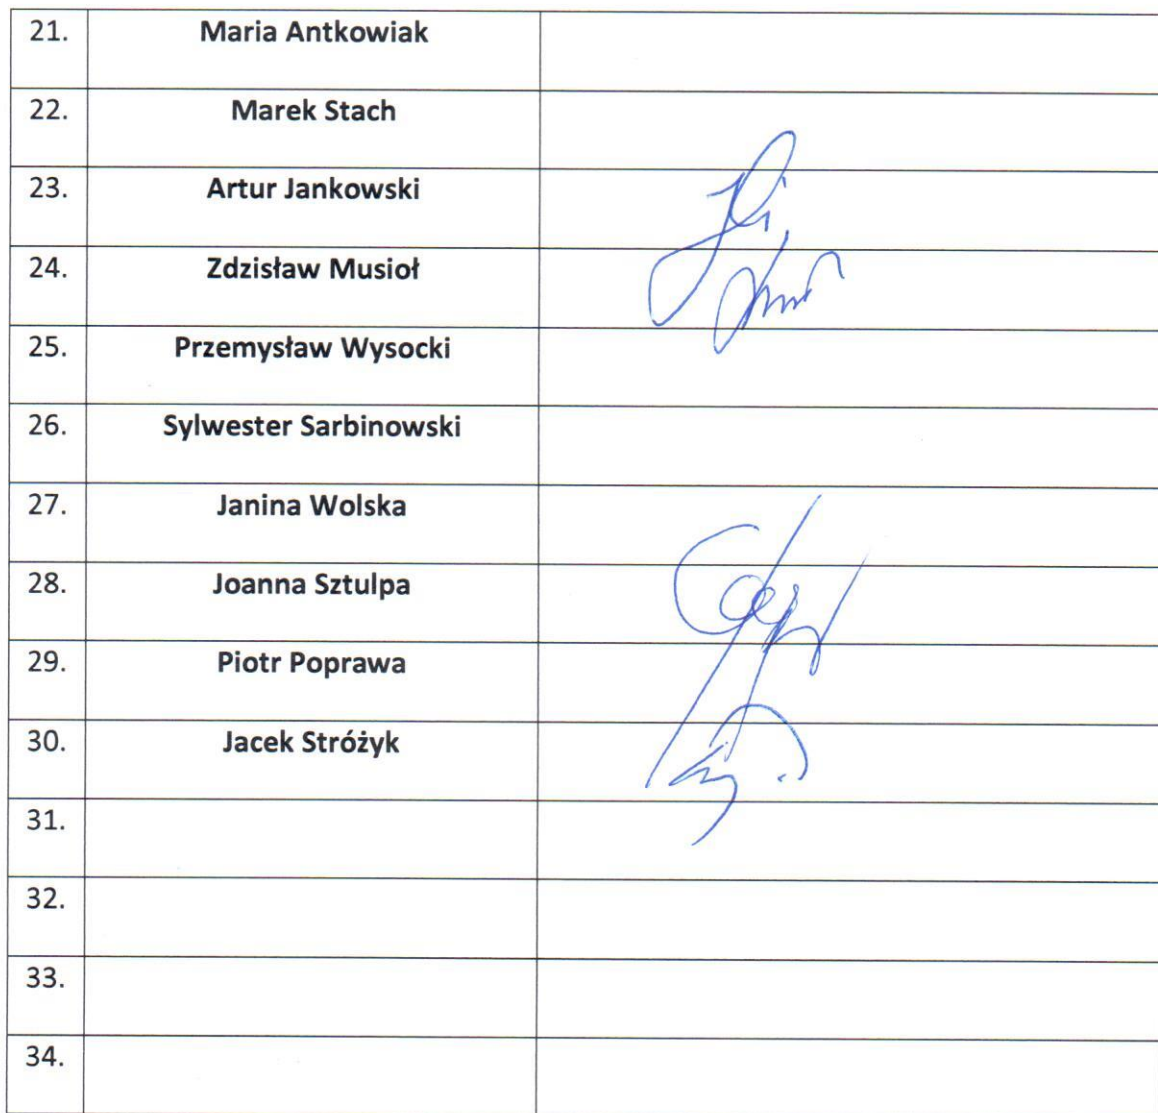 21. Maria Antkowiak
22. Marek Stach
23. Artur Jankowski
24. Zdzisław Musioł
25. Przemysław Wysocki
26. Sylwester Sarbinowski
27. Janina Wolska
28. Joanna Sztulpa
29. Piotr Poprawa
30. Jacek Stróżyk
31.
32.
33.
34.